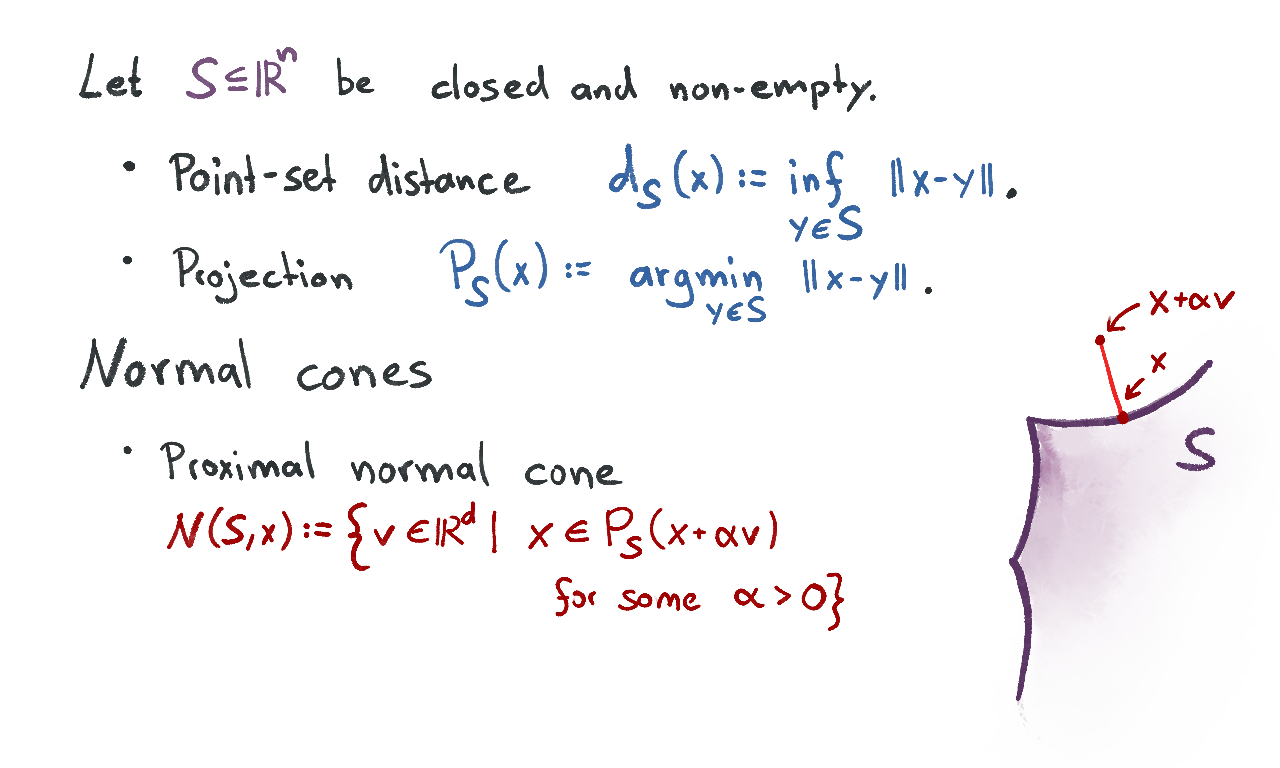 Let S ⊆ ℝⁿ be closed and non-empty.
• Point-set distance d_S(x) := inf_{y∈S} ‖x-y‖.
• Projection P_S(x) := argmin_{y∈S} ‖x-y‖.
x+αv
x
Normal cones
S
• Proximal normal cone
N(S,x) := {v ∈ ℝᵈ | x ∈ P_S(x+αv)
for some α > 0}